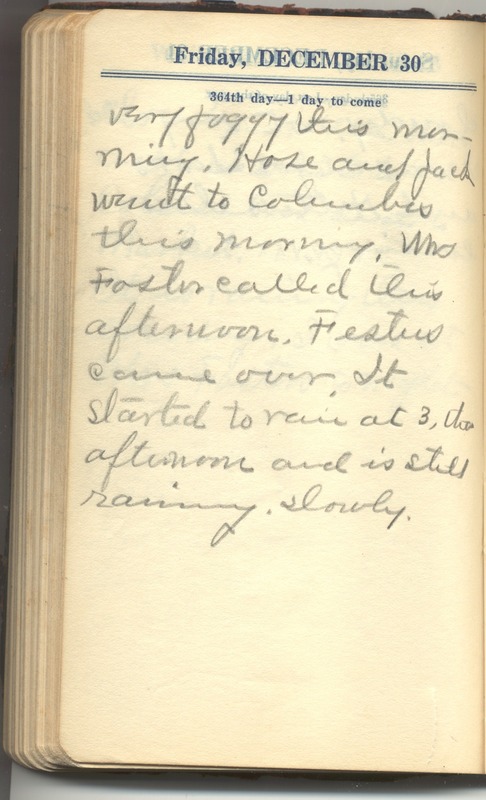 Friday, DECEMBER 30
364th day—1 day to come
very foggy this mor-
ning. Hose and Jack
went to Columbus
this morning. Mrs
Foster called this
afternoon. Festus
came over. It
started to rain at 3, this
afternoon and is still
raining. slowly.